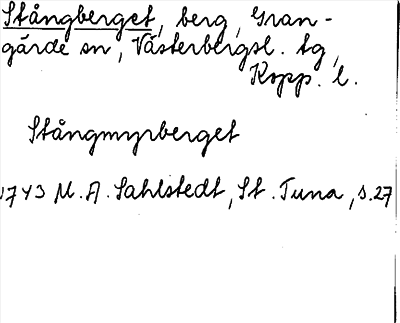 Stångberget, berg, Gran-
gärde sn, Västerbergsl. tg,
Kopp. l.
Stångmyrberget
1743 M. A. Sahlstedt, St. Tuna, s. 27